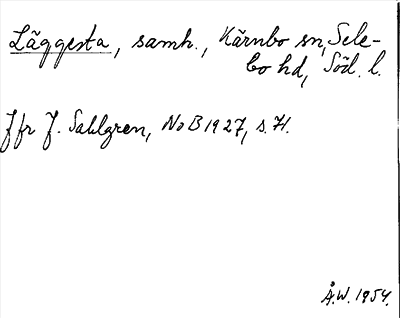 Läggesta, samh., Kärnbo sn, Sele-
bo hd, Söd. l.
Jfr J. Sahlgren, NoB 1927, s.
Å.W. 1954.